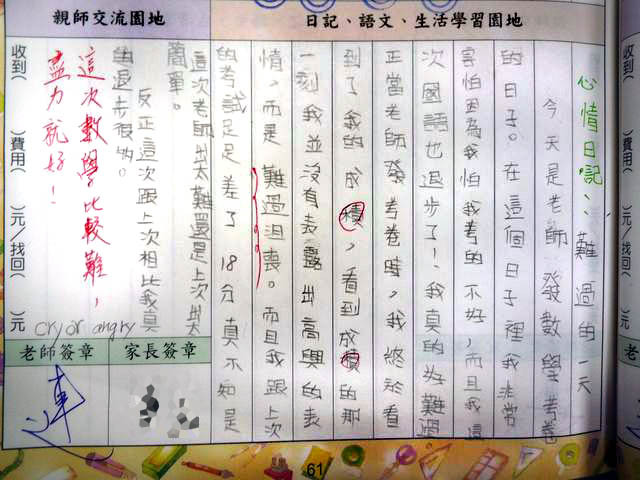 日記、語文、生活學習園地
親師交流園地
心情日記：難過的一天
今天是老師發數學考卷
的日子。在這個日子裡我非常
害怕因為我怕我考的不好，而且我這
次國語也退步了！我真的好難過
正當老師發考卷時，我終於看
到了我的成積，看到成積的那
一刻我並沒有表露出高興的表
情，而是難過沮喪。而且我跟上次
的考試足足差了18分真不知是
這次老師出太難還是上次出太
簡單。
反正這次跟上次相比我真
的退步很多。
這次數學比較難，
盡力就好！
cry or angry
收到( )費用( )元/找回( )元
老師簽章
家長簽章
連
61
收到(
)費用(
)元/找回(
)元
老